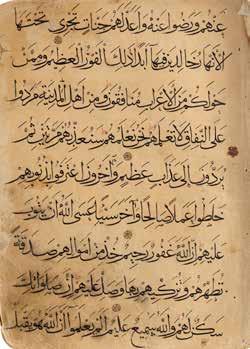 عنهم ورضوا عنه وأعد لهم جنات تجري تحتها
الأنهار خالدين فيها أبدا ذلك الفوز العظيم وممن
حولكم من الأعراب منافقون ومن أهل المدينة مردوا
على النفاق لا تعلمهم نحن نعلمهم سنعذبهم مرتين ثم
يردون إلى عذاب عظيم وآخرون اعترفوا بذنوبهم
خلطوا عملا صالحا وآخر سيئا عسى الله أن يتوب
عليهم إن الله غفور رحيم خذ من أموالهم صدقة
تطهرهم وتزكيهم بها وصل عليهم إن صلوتك
سكن لهم والله سميع عليم ألم يعلموا أن الله هو يقبل